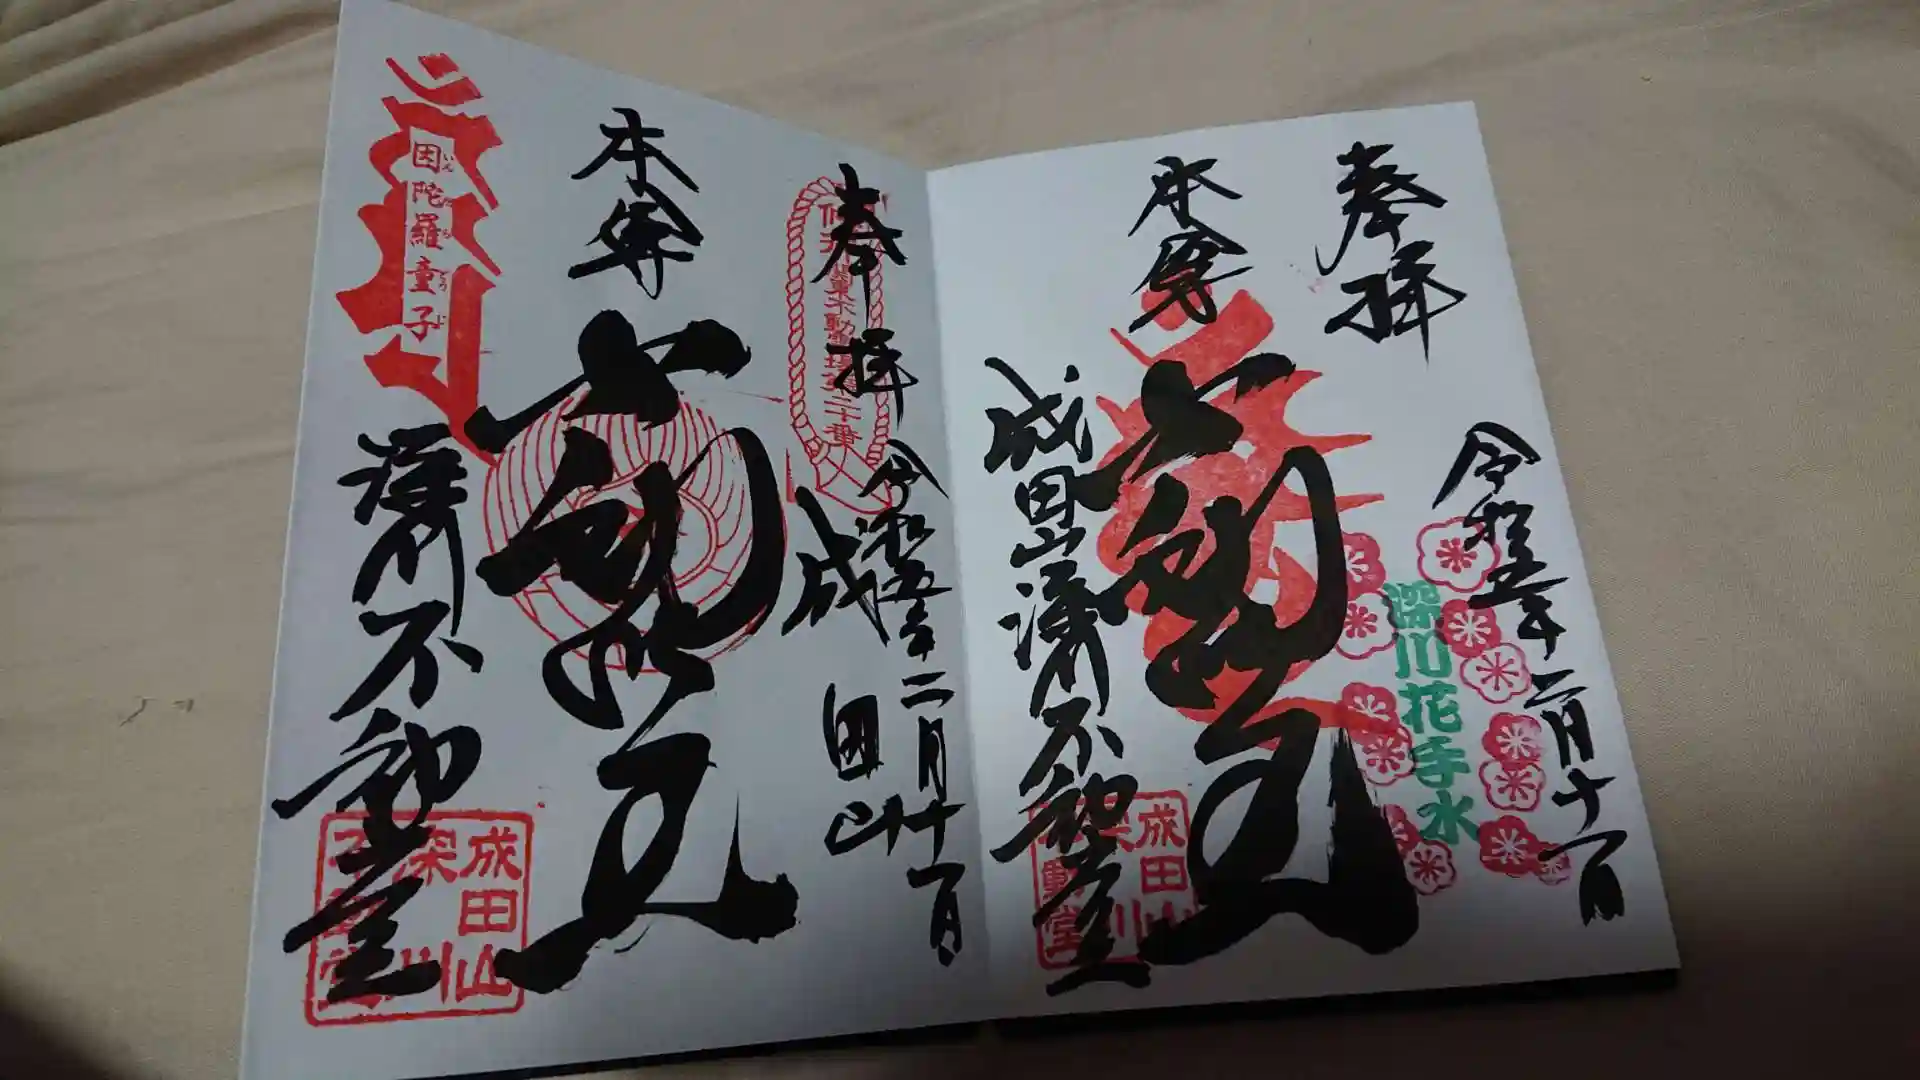 奉拝
令和五年二月十一日
深川花手水
本尊
不動明王
成田山深川不動堂
成田山
深川
不動堂
奉拝
令和五年二月十一日
不動霊場第二十番
成田山
本尊
不動明王
深川不動堂
因陀羅童子
成田山
深川
不動堂